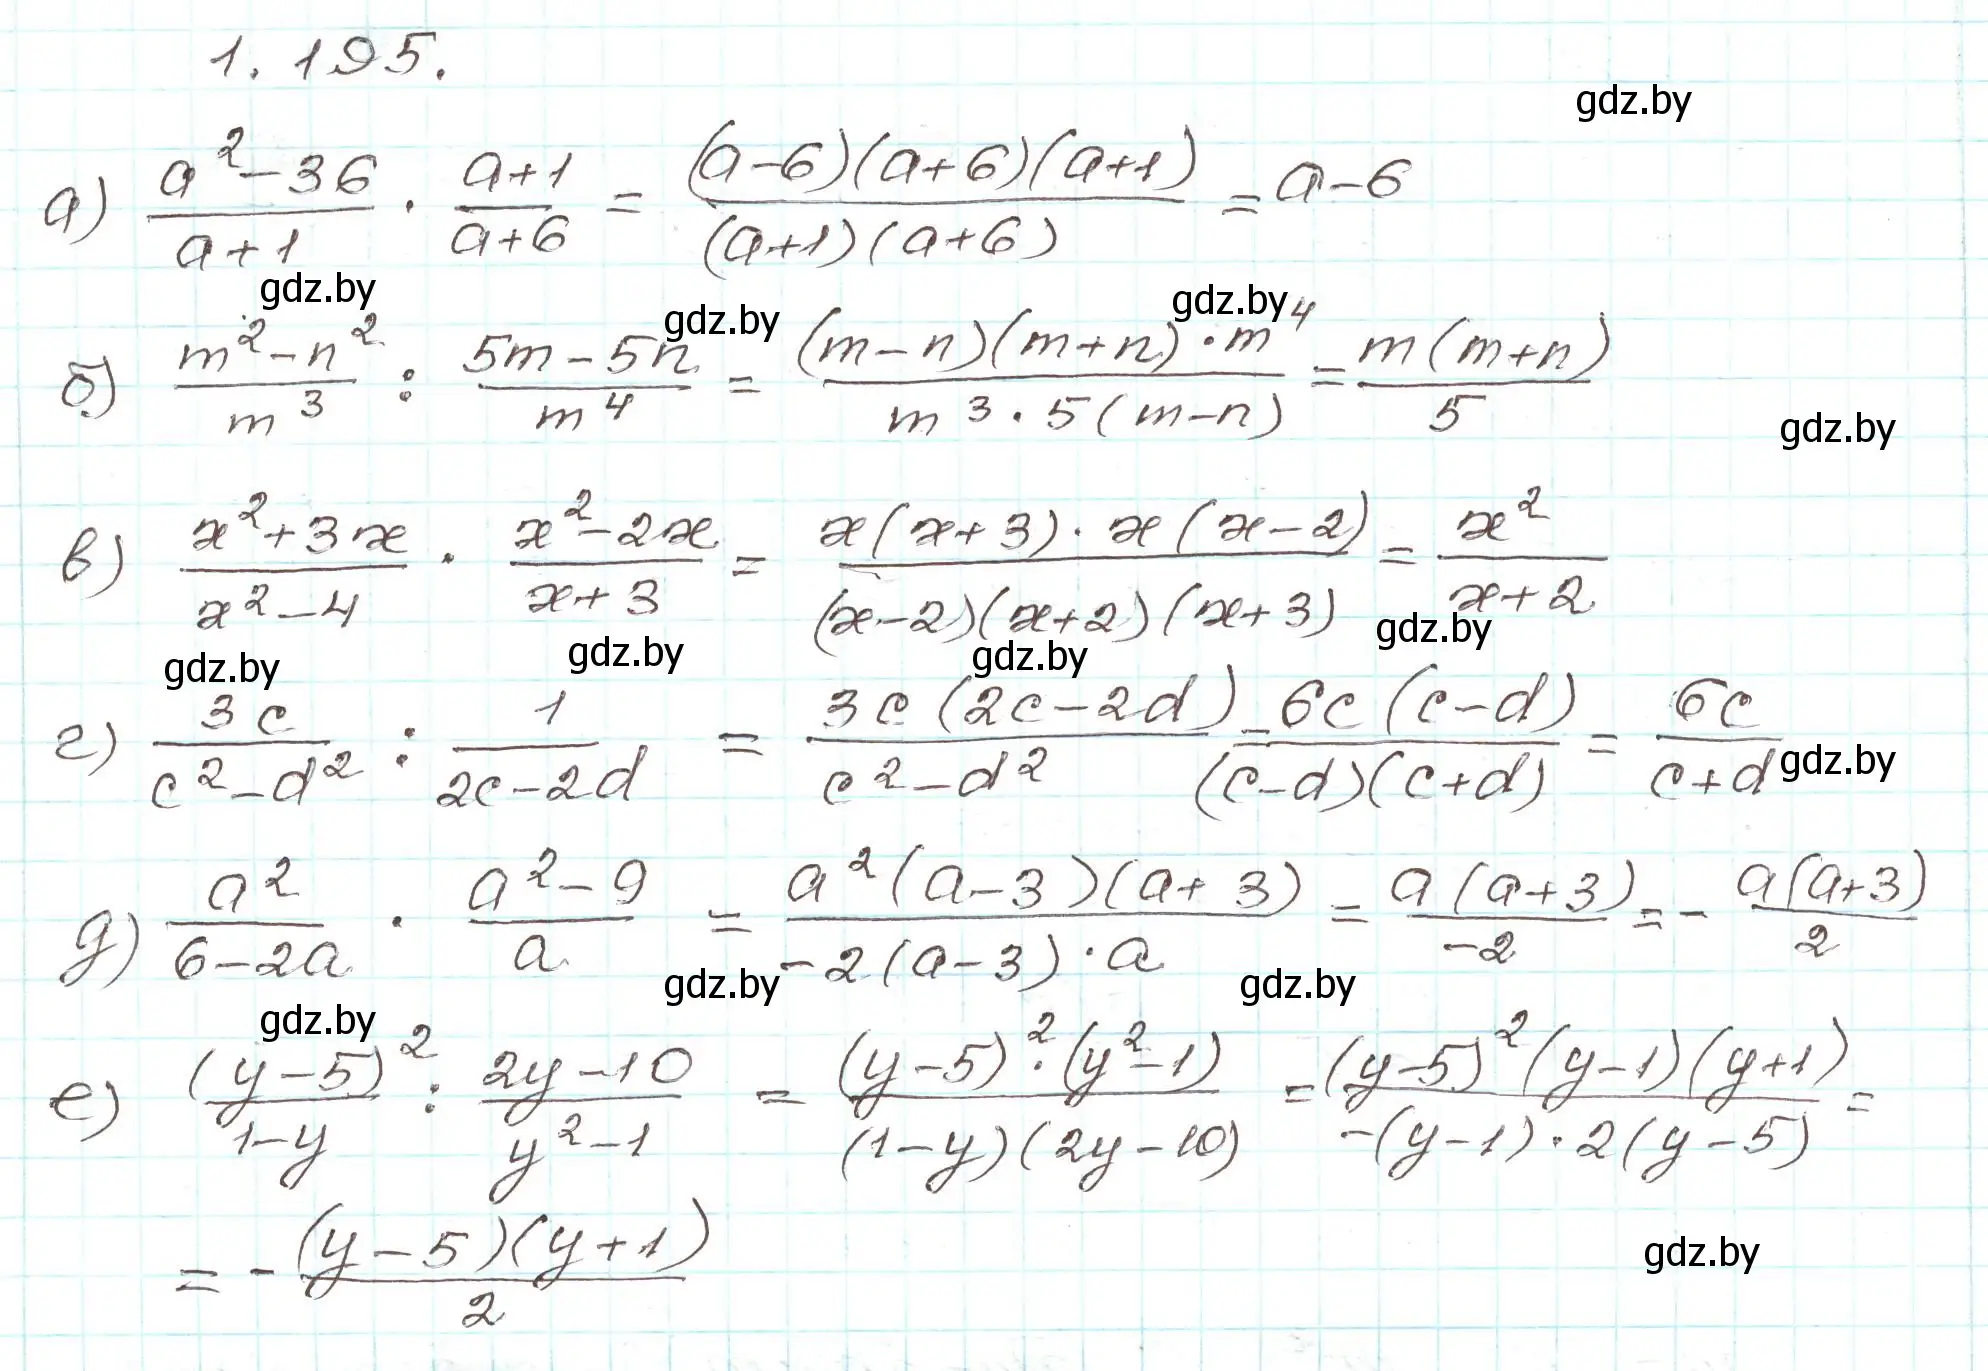 1.195.
gdz.by
а) (a²-36)/(a+1) · (a+1)/(a+6) = ((a-6)(a+6)(a+1))/((a+1)(a+6)) = a-6
gdz.by gdz.by gdz.by
б) (m²-n²)/m³ : (5m-5n)/m⁴ = ((m-n)(m+n)·m⁴)/(m³·5(m-n)) = (m(m+n))/5
gdz.by
в) (x²+3x)/(x²-4) · (x²-2x)/(x+3) = (x(x+3)·x(x-2))/((x-2)(x+2)(x+3)) = x²/(x+2)
gdz.by gdz.by gdz.by gdz.by
г) 3c/(c²-d²) : 1/(2c-2d) = (3c(2c-2d))/(c²-d²) = (6c(c-d))/((c-d)(c+d)) = 6c/(c+d)
gdz.by
д) a²/(6-2a) · (a²-9)/a = (a²(a-3)(a+3))/(-2(a-3)·a) = (a(a+3))/(-2) = -(a(a+3))/2
gdz.by gdz.by gdz.by
е) (y-5)²/(1-y) : (2y-10)/(y²-1) = ((y-5)²·(y²-1))/((1-y)(2y-10)) = ((y-5)²(y-1)(y+1))/(-(y-1)·2(y-5)) =
= -((y-5)(y+1))/2
gdz.by